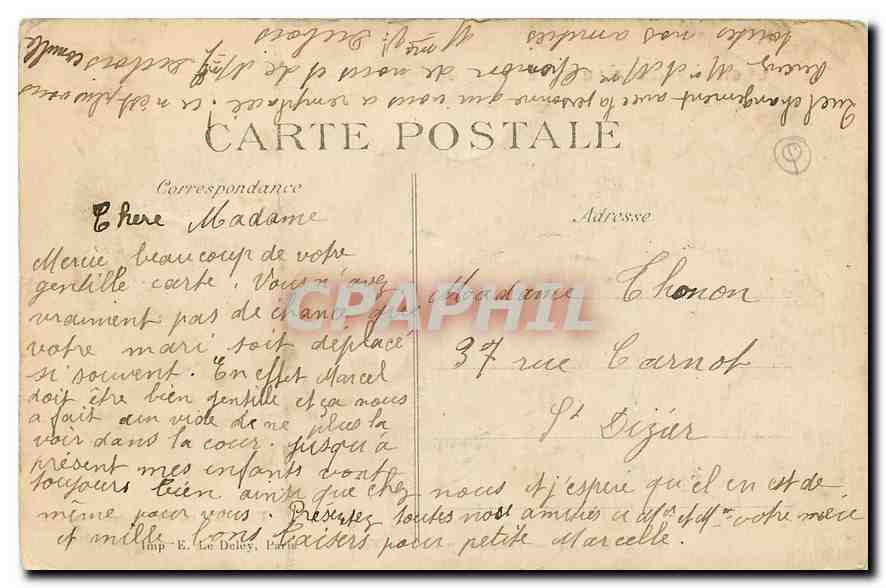 CARTE POSTALE
Correspondance
Chere Madame
Mercie beaucoup de votre
gentille carte. Vous n'avez
vraiment pas de chance que
votre mari soit déplacé
si souvent. En effet Marcel
doit être bien gentille et ça nous
a fait un vide de ne plus la
voir dans la cour. jusqu'à
présent mes enfants vont
toujours bien ainsi que chez nous et j'espere qu'il en est de
même pour vous. Présentez toutes nos amitiés a Mr et Mme votre mère
et mille bons baisers pour petite Marcelle.
Imp. E. Le Deley, Paris
Adresse
Madame Thonon
37 rue Carnot
St Dizier
CPAPHIL
Quel changement avec la personne qui vous a remplacé. ce n'est plus vous
Mr et Mme de nous et de Mme Dubois
toutes nos amitiés Mme V. Dubois